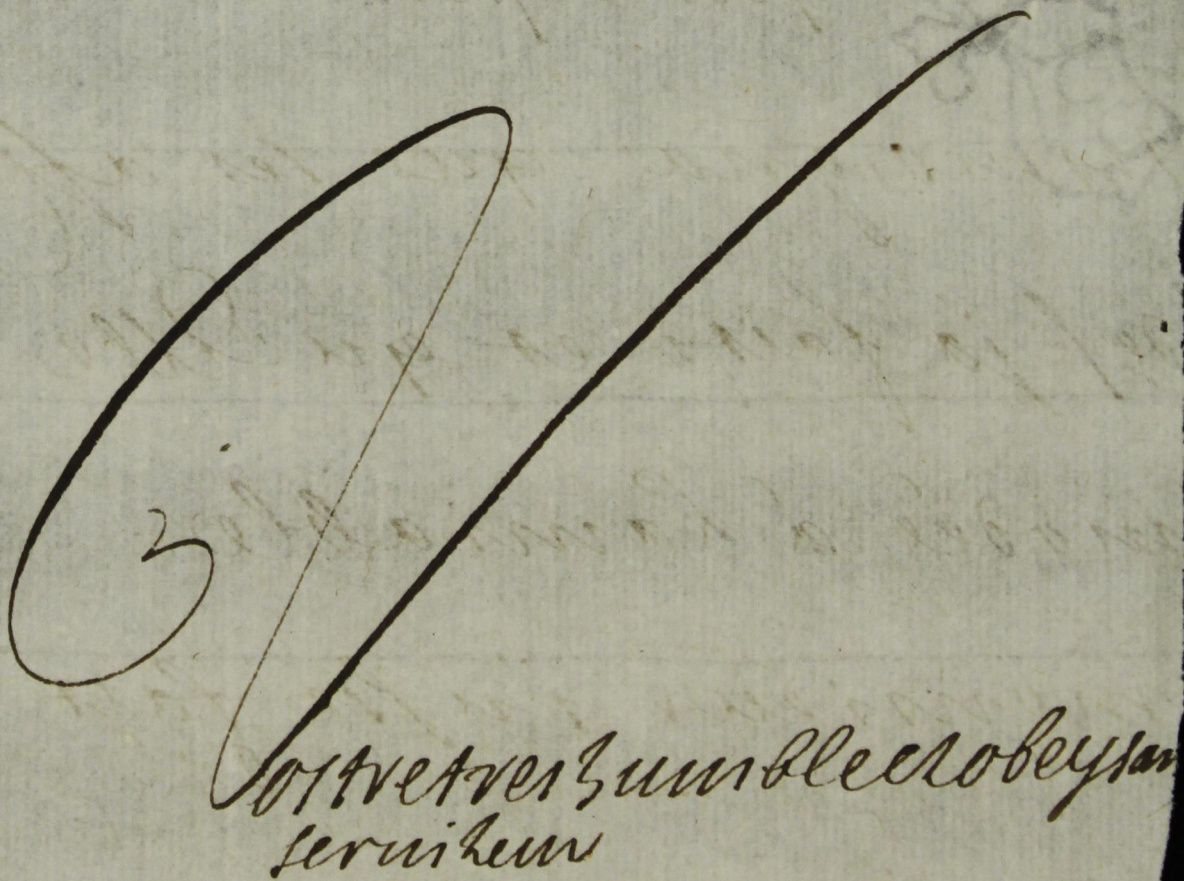 Vostre tres humble et obeysan
seruiteur